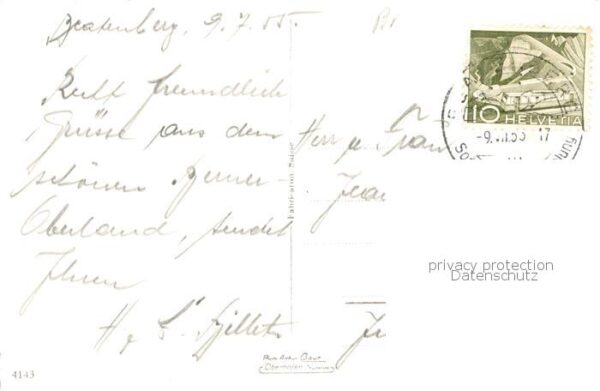 Beatenberg, 9.7.55.
Recht freundliche
Grüsse aus dem
schönen Berner-
Oberland, sendet
Ihnen
H. & L.
Herr u. Frau
Jean
10
HELVETIA
-9.VII.55 17
privacy protection
Datenschutz
Fabrication Suisse
Oberhofen
4143